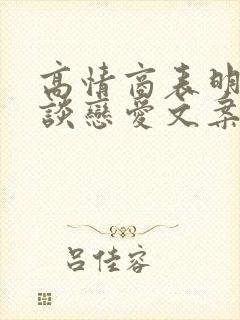 高情商表明
談戀愛文案
吕佳容